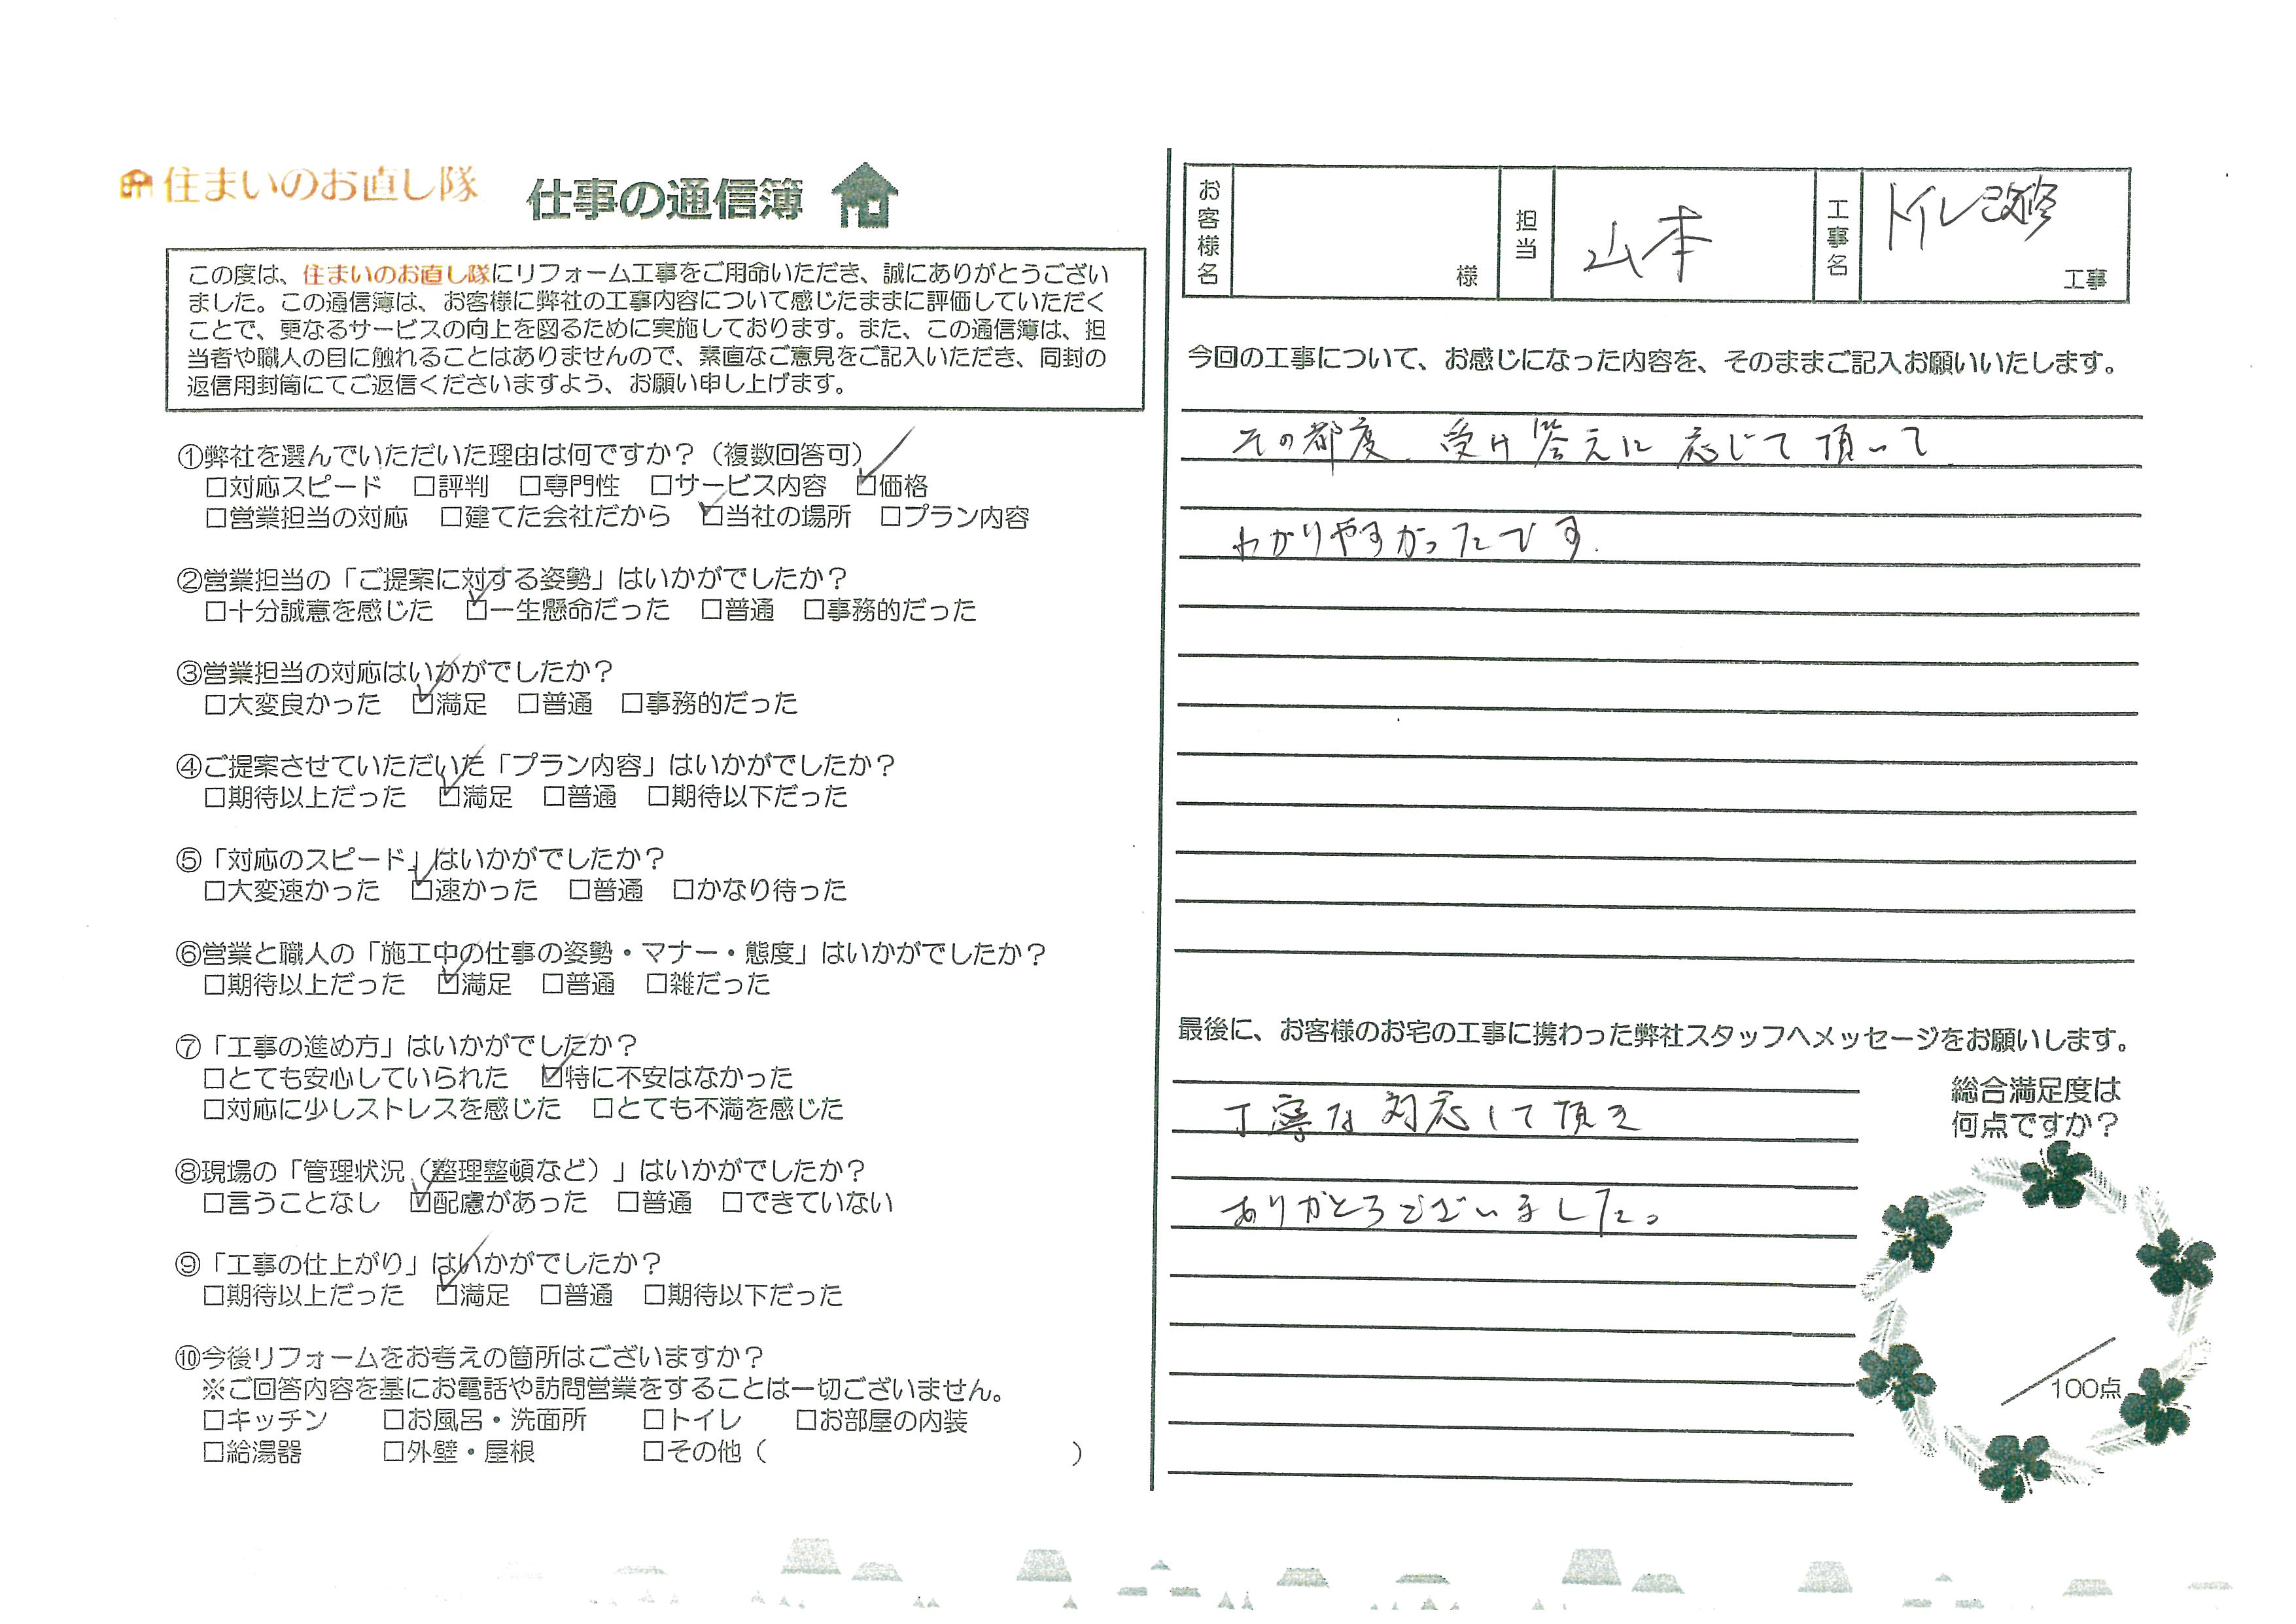 住まいのお直し隊 仕事の通信簿
この度は、住まいのお直し隊にリフォーム工事をご用命いただき、誠にありがとうござい
ました。この通信簿は、お客様に弊社の工事内容について感じたままに評価していただく
ことで、更なるサービスの向上を図るために実施しております。また、この通信簿は、担
当者や職人の目に触れることはありませんので、素直なご意見をご記入いただき、同封の
返信用封筒にてご返信くださいますよう、お願い申し上げます。
①弊社を選んでいただいた理由は何ですか？（複数回答可）
□対応スピード □評判 □専門性 □サービス内容 ☑価格
□営業担当の対応 □建てた会社だから ☑当社の場所 □プラン内容
②営業担当の「ご提案に対する姿勢」はいかがでしたか？
□十分誠意を感じた ☑一生懸命だった □普通 □事務的だった
③営業担当の対応はいかがでしたか？
□大変良かった ☑満足 □普通 □事務的だった
④ご提案させていただいた「プラン内容」はいかがでしたか？
□期待以上だった ☑満足 □普通 □期待以下だった
⑤「対応のスピード」はいかがでしたか？
□大変速かった ☑速かった □普通 □かなり待った
⑥営業と職人の「施工中の仕事の姿勢・マナー・態度」はいかがでしたか？
□期待以上だった ☑満足 □普通 □雑だった
⑦「工事の進め方」はいかがでしたか？
□とても安心していられた ☑特に不安はなかった
□対応に少しストレスを感じた □とても不満を感じた
⑧現場の「管理状況（整理整頓など）」はいかがでしたか？
□言うことなし ☑配慮があった □普通 □できていない
⑨「工事の仕上がり」はいかがでしたか？
□期待以上だった ☑満足 □普通 □期待以下だった
⑩今後リフォームをお考えの箇所はございますか？
※ご回答内容を基にお電話や訪問営業をすることは一切ございません。
□キッチン □お風呂・洗面所 □トイレ □お部屋の内装
□給湯器 □外壁・屋根 □その他（ ）
お客様名 様 担当 山本 工事名 トイレ改修 工事
今回の工事について、お感じになった内容を、そのままご記入お願いいたします。
その都度、受け答えに応じて頂いて
わかりやすかったです.
最後に、お客様のお宅の工事に携わった弊社スタッフへメッセージをお願いします。
丁寧な対応して頂き
ありがとうございました。
総合満足度は
何点ですか？
／100点